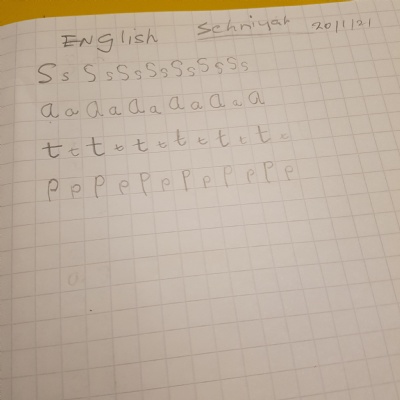 English Schniyah 20/1/21
S s S s S s S s S s S s S s
a a a a a a a a a a a
t t t t t t t t t t t t
P p P p P p P p P p P p